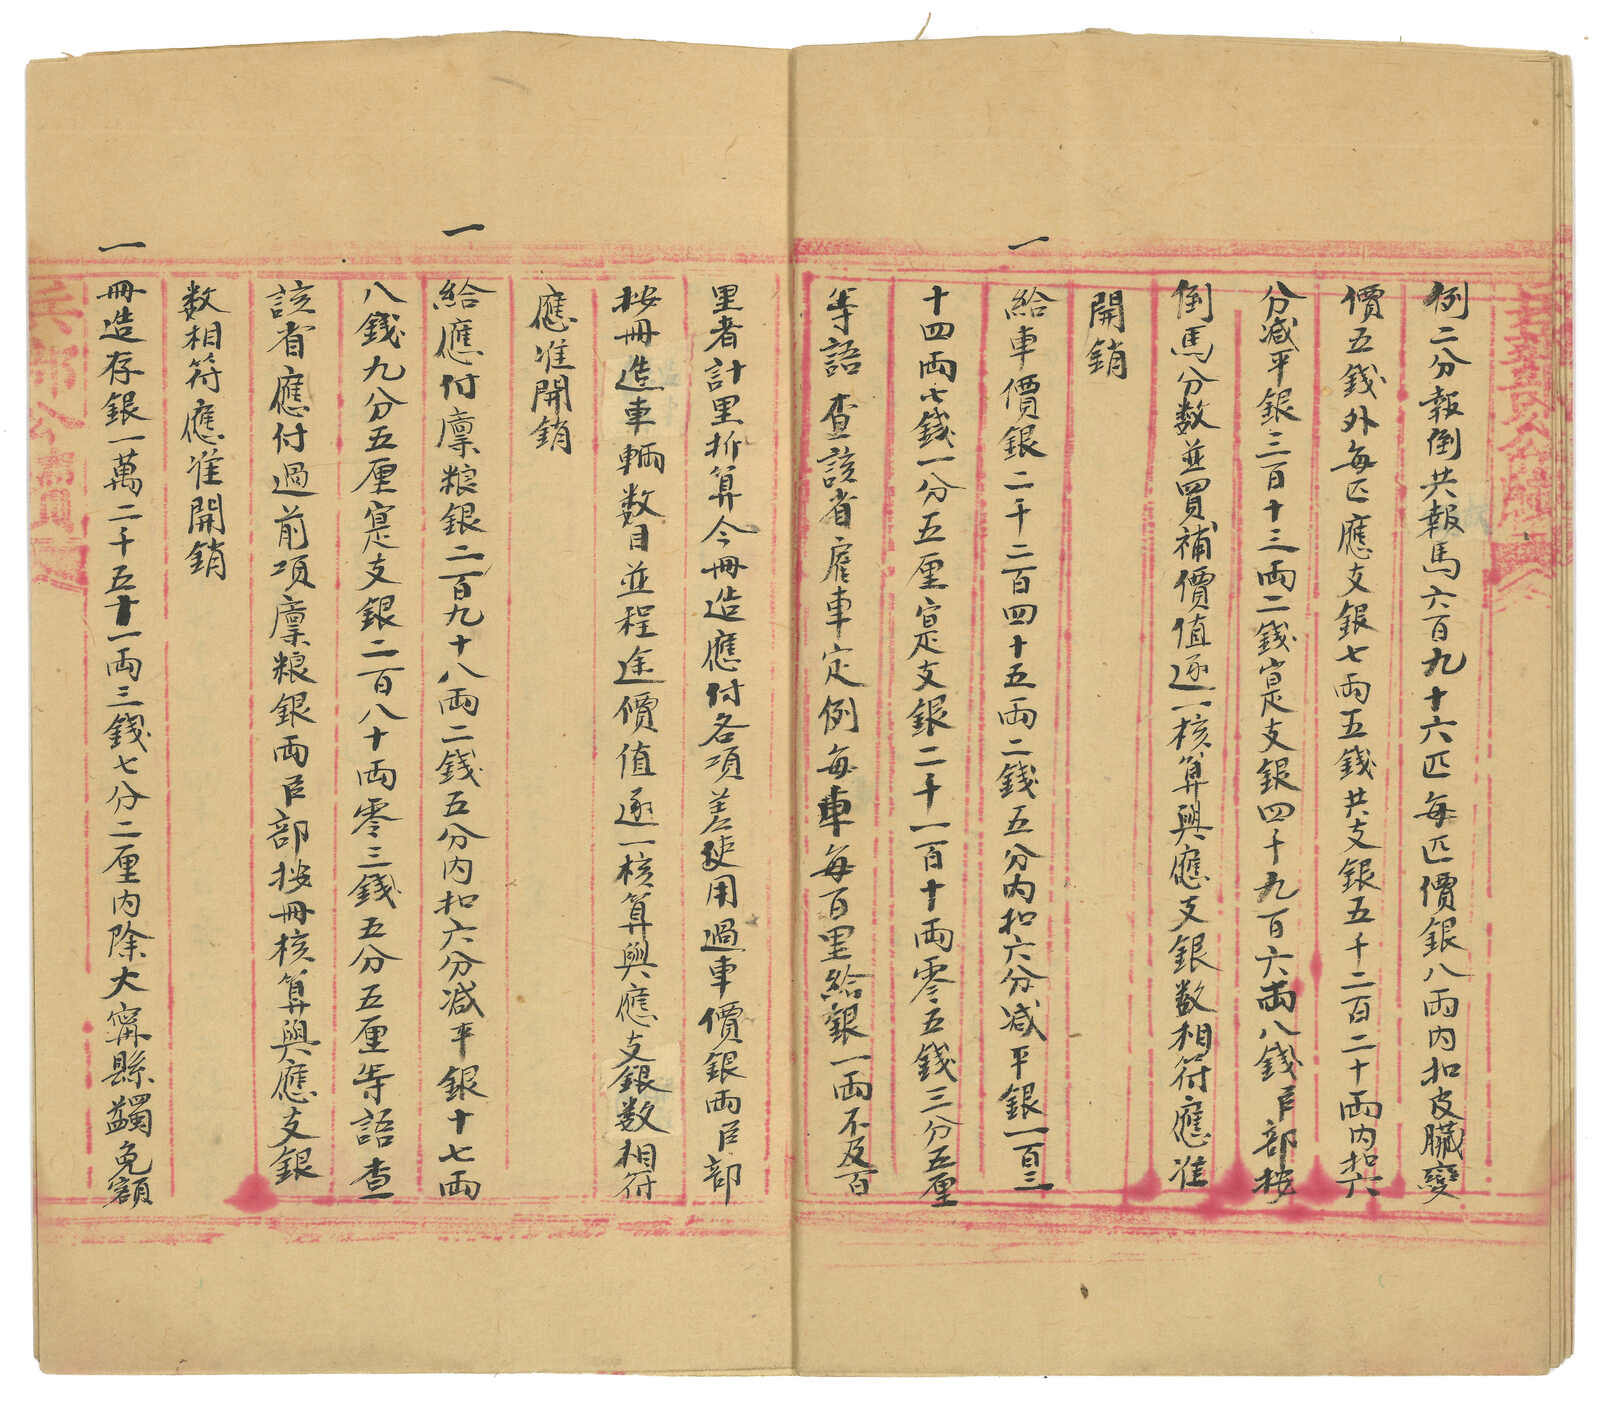 例二分報倒共報馬六百九十六匹每匹價銀八両内扣皮臓變
價五錢外每匹應支銀七両五錢共支銀五千二百二十両内扣六
分減平銀三百十三両二錢寔支銀四千九百六両八錢臣部按
倒馬分数並買補價值逐一核算與應支銀数相符應准
開銷
一給車價銀二千二百四十五両二錢五分内扣六分減平銀一百三
十四両七錢一分五厘寔支銀二千一百十両零五錢三分五厘
等語查該省雇車定例每車每百里給銀一両不及百
里者計里折算今冊造應付各項差使用過車價銀両臣部
按冊造車輛数目並程途價值逐一核算與應支銀数相符
應准開銷
一給應付廪粮銀二百九十八両二錢五分内扣六分減平銀十七両
八錢九分五厘寔支銀二百八十両零三錢五分五厘等語查
該省應付過前項廪粮銀両臣部按冊核算與應支銀
数相符應准開銷
一冊造存銀一萬二千五十一両三錢七分二厘内除大甯縣蠲免額
兵部公牘